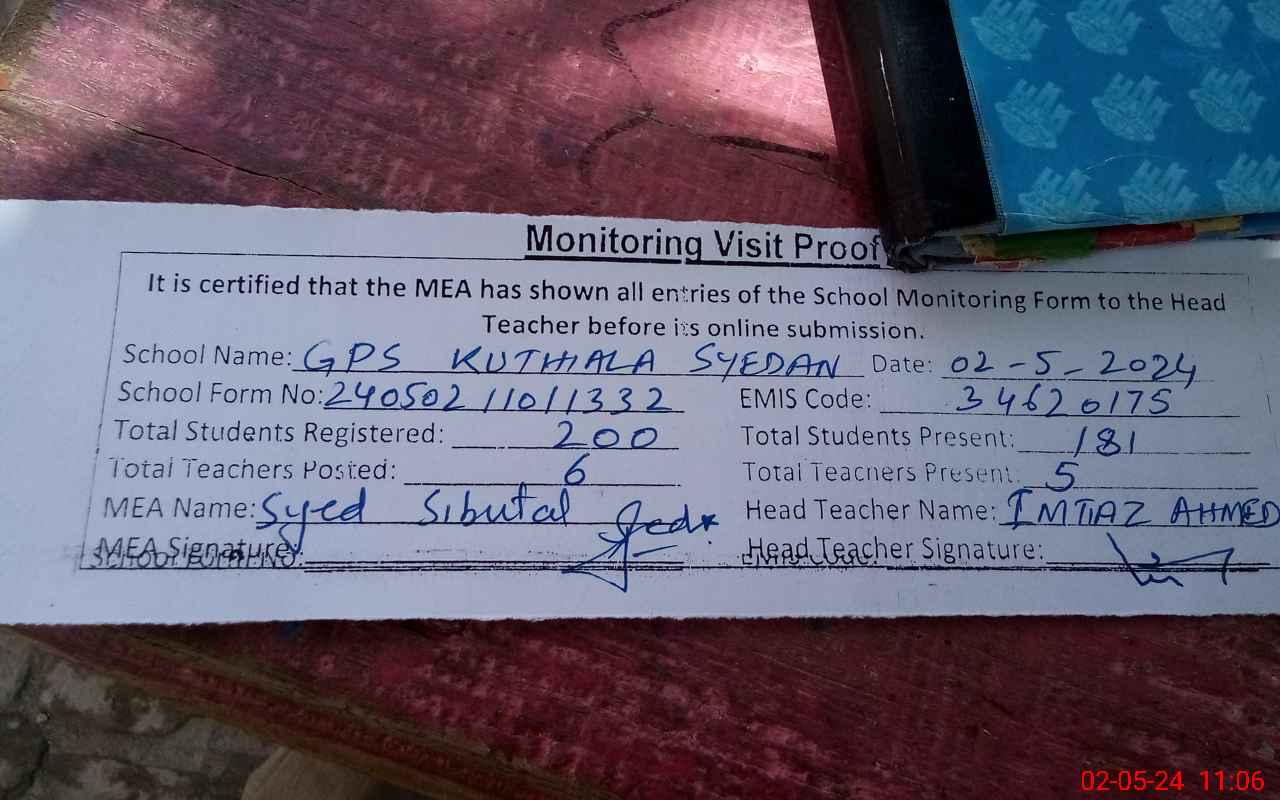 Monitoring Visit Proof
It is certified that the MEA has shown all entries of the School Monitoring Form to the Head
Teacher before its online submission.
School Name: GPS KUTHIALA SYEDAN Date: 02-5-2024
School Form No: 24050211011332 EMIS Code: 34620175
Total Students Registered: 200 Total Students Present: 181
Total Teachers Posted: 6 Total Teachers Present: 5
MEA Name: Syed Sibutal Head Teacher Name: IMTIAZ AHMED
MEA Signature: Head Teacher Signature:
School Form No: EMIS Code:
02-05-24 11:06